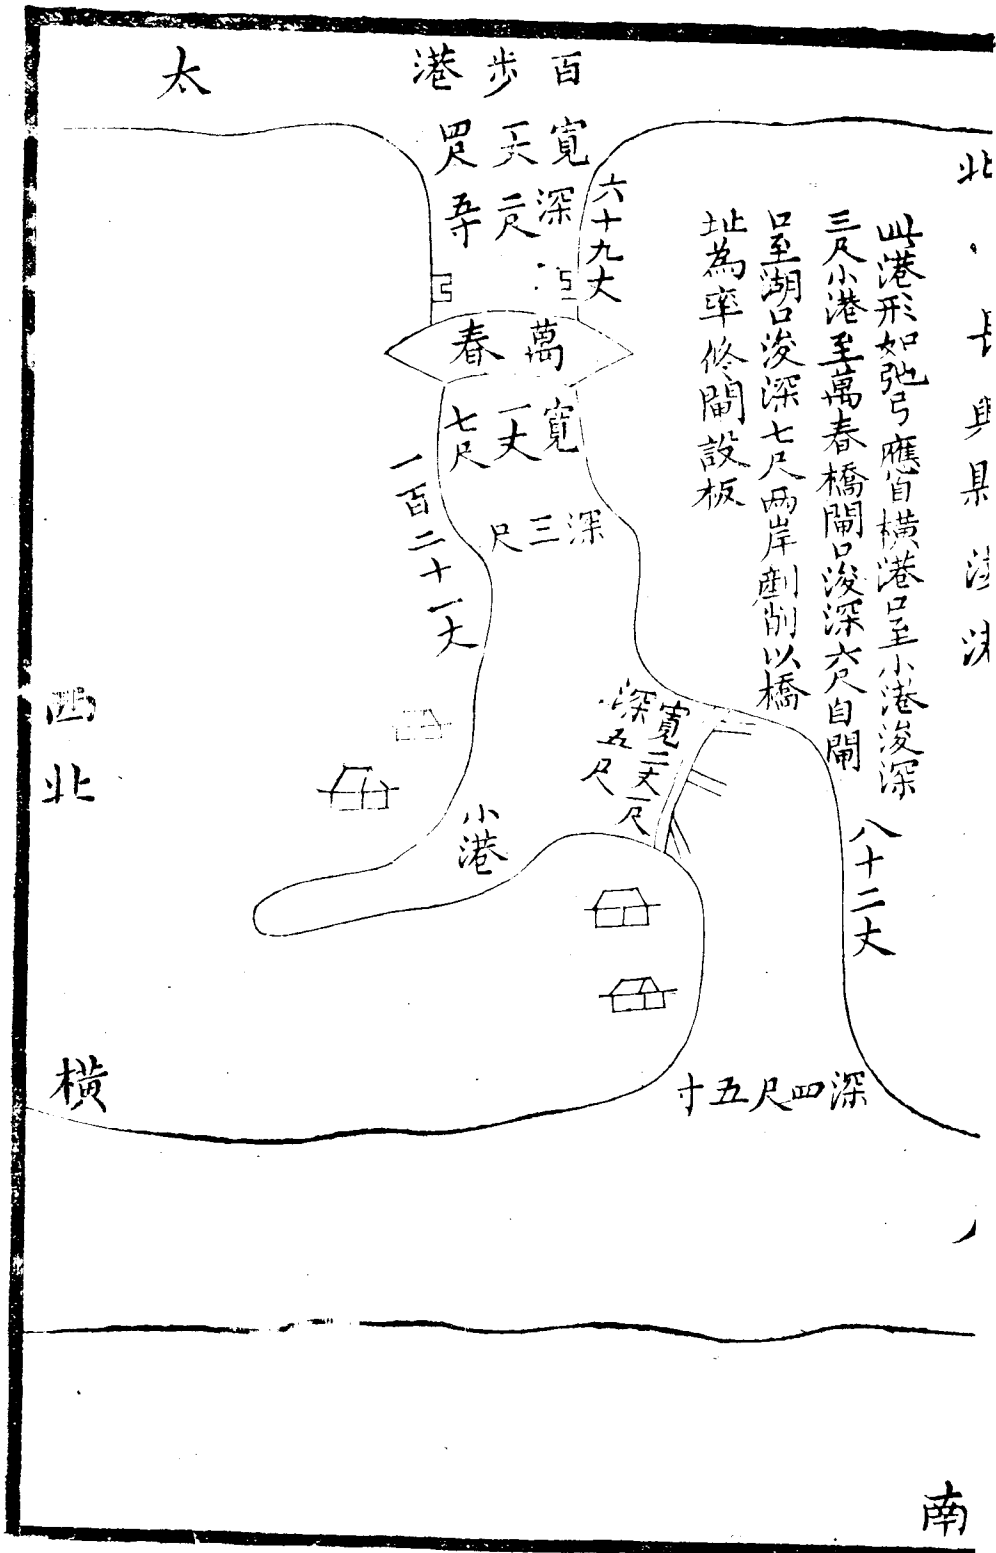 北
長興縣漊港
此港形如弛弓應自橫港口至小港浚深
三尺小港至萬春橋閘口浚深六尺自閘
口至湖口浚深七尺兩岸剷削以橋
址為率修閘設板
百步港
太
寬一丈四尺
深二尺五寸
六十九丈
萬春
寬一丈七尺
深三尺
一百二十一丈
寬二丈一尺
深五尺
小港
八十二丈
深四尺五寸
西北
橫
南